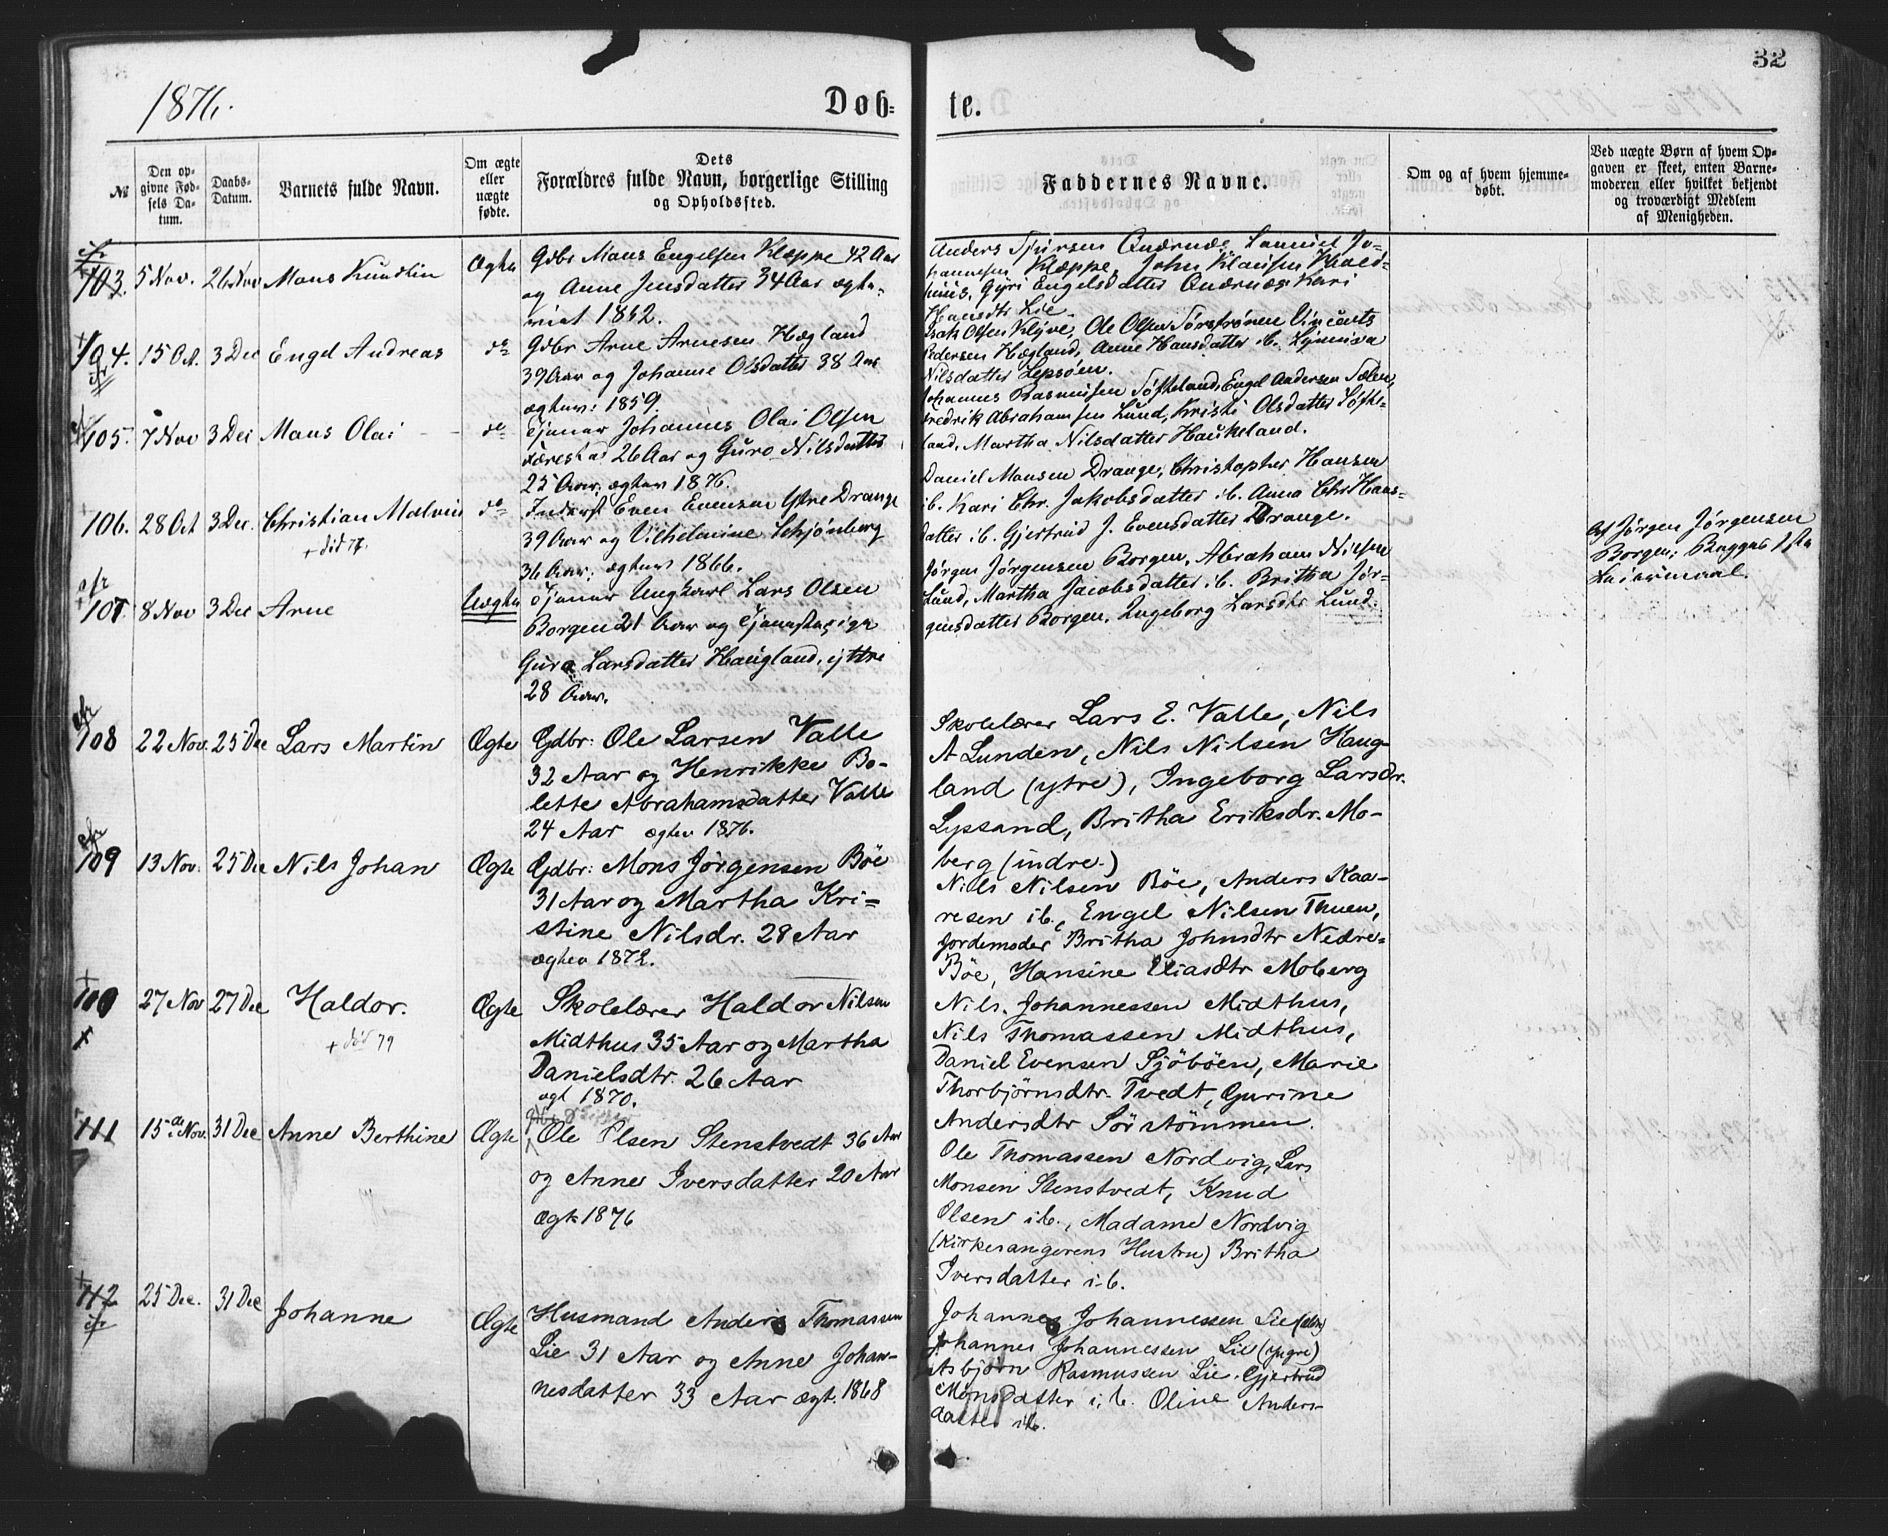 32
1876.
Døb=
te.
№
Den op=
givne Fød=
sels Da=
tum.
Daabs=
Datum.
Barnets fulde Navn.
Om ægte
eller
uægte
fødte.
Dets
Forældres fulde Navn, borgerlige Stilling
og Opholdssted.
Faddernes Navne.
Om og af hvem hjemme=
døbt.
Ved uægte Børn af hvem Op=
gaven er skeet, enten Barne=
moderen eller hvilket bekjendt
og troværdigt Medlem
af Menigheden.
103. 5 Nov. 26 Nov Mons Knudtin Ægte
Gdbr Mons Engelsen Kleppe 42 Aar
og Anne Jensdatter 34 Aar ægte-
viet 1862.
Anders Sjursen Samuel Jo-
hannesen Kleppe, John Klausen
Gyri Engelsdatter Kari
Hansdtr Lie.
104. 15 Oct. 3 Dec Engel Andreas do
Gdbr Arne Arnesen Hegland
39 Aar og Johanne Olsdatter 38 Aar
ægtev: 1859.
Isak Olsen Klyve, Ole Olsen Sørstrønen Vincents
Pedersen Hegland, Anne Hansdatter ib.
Nilsdatter Lepsøen.
105. 7 Nov 3 Dec Mons Olai do
Tjener Johannes Olai Olsen
26 Aar og Guro Nilsdatter
25 Aar, ægtev 1876.
Johannes Rasmussen Søfteland, Engel Andersen Sælen,
Fredrik Abrahamsen Lund, Kristi Olsdatter Søfte-
land, Martha Nilsdatter Haukeland.
106. 28 Oct 3 Dec. Christian Malvin do
+ død 77.
Inderst Even Evensen Ytre Drange
39 Aar og Vilhelmine Schjønberg
36 Aar; ægtev 1866.
Daniel Monsen Drange, Christopher Hansen
ib. Kari Chr. Jakobsdatter ib. Anna Chr Hans-
datter ib. Gjertrud J. Evensdatter Drange.
107 8 Nov 3 Dec Arne Uægte
Tjener Ungkarl Lars Olsen
Borgen 21 Aar og Tjenestepige
Guro Larsdatter Haugland, yttre
28 Aar.
Jørgen Jørgensen Borgen, Abraham Nilsen
Lund, Martha Jacobsdatter ib. Britha Jør-
gensdatter Borgen, Ingeborg Larsdtr Lund.
Af Jørgen Jørgensen
Borgen; Begges 1ste
Leiermaal.
108 22 Nov. 25 Dec Lars Martin Ægte
Gdbr: Ole Larsen Valle
32 Aar og Henrikke Bo-
lette Abrahamsdatter Valle
24 Aar ægtev 1876.
Skolelærer Lars E. Valle, Nils
A Lunden, Nils Nilsen Haug-
land (ytre), Ingeborg Larsdr.
Lyssand, Britha Eriksdr. Mo-
berg (indre.)
109 13 Nov. 25 Dec Nils Johan Ægte
Gdbr: Mons Jørgensen Böe
31 Aar og Martha Kri=
stine Nilsdr. 28 Aar
ægtev 1872.
Nils Nilsen Böe, Anders Kaa-
resen ib., Engel Nilsen Thuen,
Jordemoder Britha Johnsdtr Nedre-
Böe, Hansine Eliasdtr Moberg
110 27 Nov 27 Dec Haldor. Ægte
+ død 79
Skolelærer Haldor Nilsen
Midthus 35 Aar og Martha
Danielsdtr. 26 Aar
ægt 1870.
Nils. Johannessen Midthus,
Nils Thomassen Midthus,
Daniel Evensen Sjöböen, Marie
Thorbjörnsdtr. Tvedt, Gurine
Andersdtr Sörstömmen.
111 15de Nov. 31 Dec Anne Berthine Ægte
Ole Olsen Stenstvedt 36 Aar
og Anne Iversdatter 20 Aar
Ægt 1876
Ole Thomassen Nordvig, Lars
Monsen Stenstvedt, Knud
Olsen ib., Madame Nordvig
(Kirkesangerens Hustru) Britha
Iversdatter ib.
112 25 Dec. 31 Dec Johanne Ægte
Husmand Anders Thomassen
Lie 31 Aar og Anne Johan-
nesdatter 33 Aar ægt. 1868
Johannes Johannessen Lie (ældre)
Johannes Johannessen Lie (yngre)
Asbjörn Rasmussen Lie. Gjertrud
Monsdatter ib. Oline Anders-
datter ib.